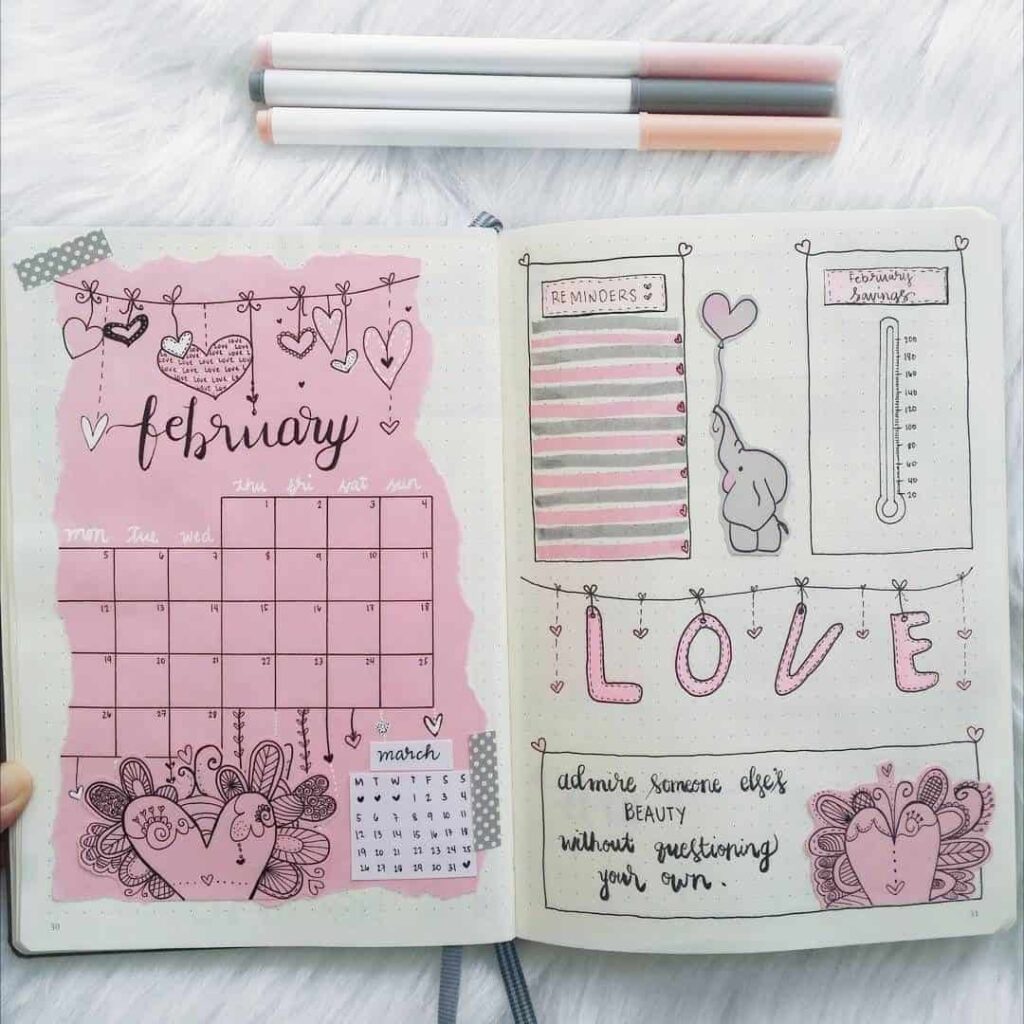 LOVE
LOVE LOVE LOVE
LOVE LOVE LOVE
LOVE LOVE
LOVE
february
thu fri sat sun
1 2 3 4
mon Tue wed
5 6 7 8 9 10 11
12 13 14 15 16 17 18
19 20 21 22 23 24 25
26 27 28
march
M T W T F S S
1 2 3 4
5 6 7 8 9 10 11
12 13 14 15 16 17 18
19 20 21 22 23 24 25
26 27 28 29 30 31
30
REMINDERS
february
savings
200
180
160
140
120
100
80
60
40
20
LOVE
admire someone else's
BEAUTY
without questioning
your own.
31